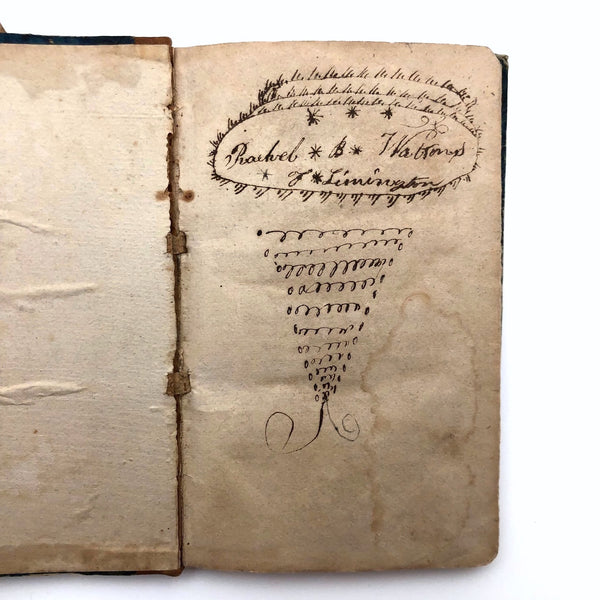 Rachel * B * Watsons
Limington